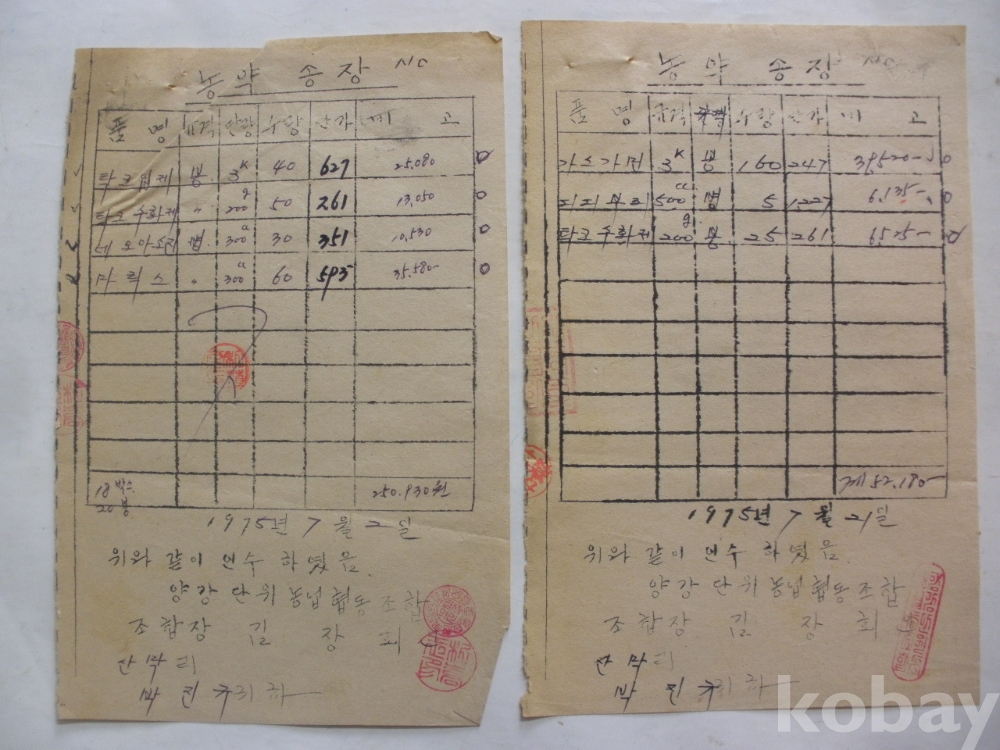 농약 송장 NO
품명 규격 단량 수량 단가 비고
타크입제 봉 3K 40 627 25,080 0
타크수화제 〃 200g 50 261 13,050 0
병 300cc 30 351 10,530 0
마릭스 〃 300cc 60 593 35,580- 0
18박스 250.930원
20봉
1975년 7월 2일
위와 같이 인수 하였음.
양강단위농업협동조합
조합장 김장회
박진규귀하
농약 송장 NO
품명 규격 수량 단가 비고
가스가민 3K 봉 160 247 39,520- 0
지지마리 500cc 병 5 1,227 6,135- 0
타크수화제 200g 봉 25 261 6525- 0
계 52.180-
1975년 7월 21일
위와 같이 인수 하였음.
양강단위농업협동조합
조합장 김장회
박진규귀하
kobay